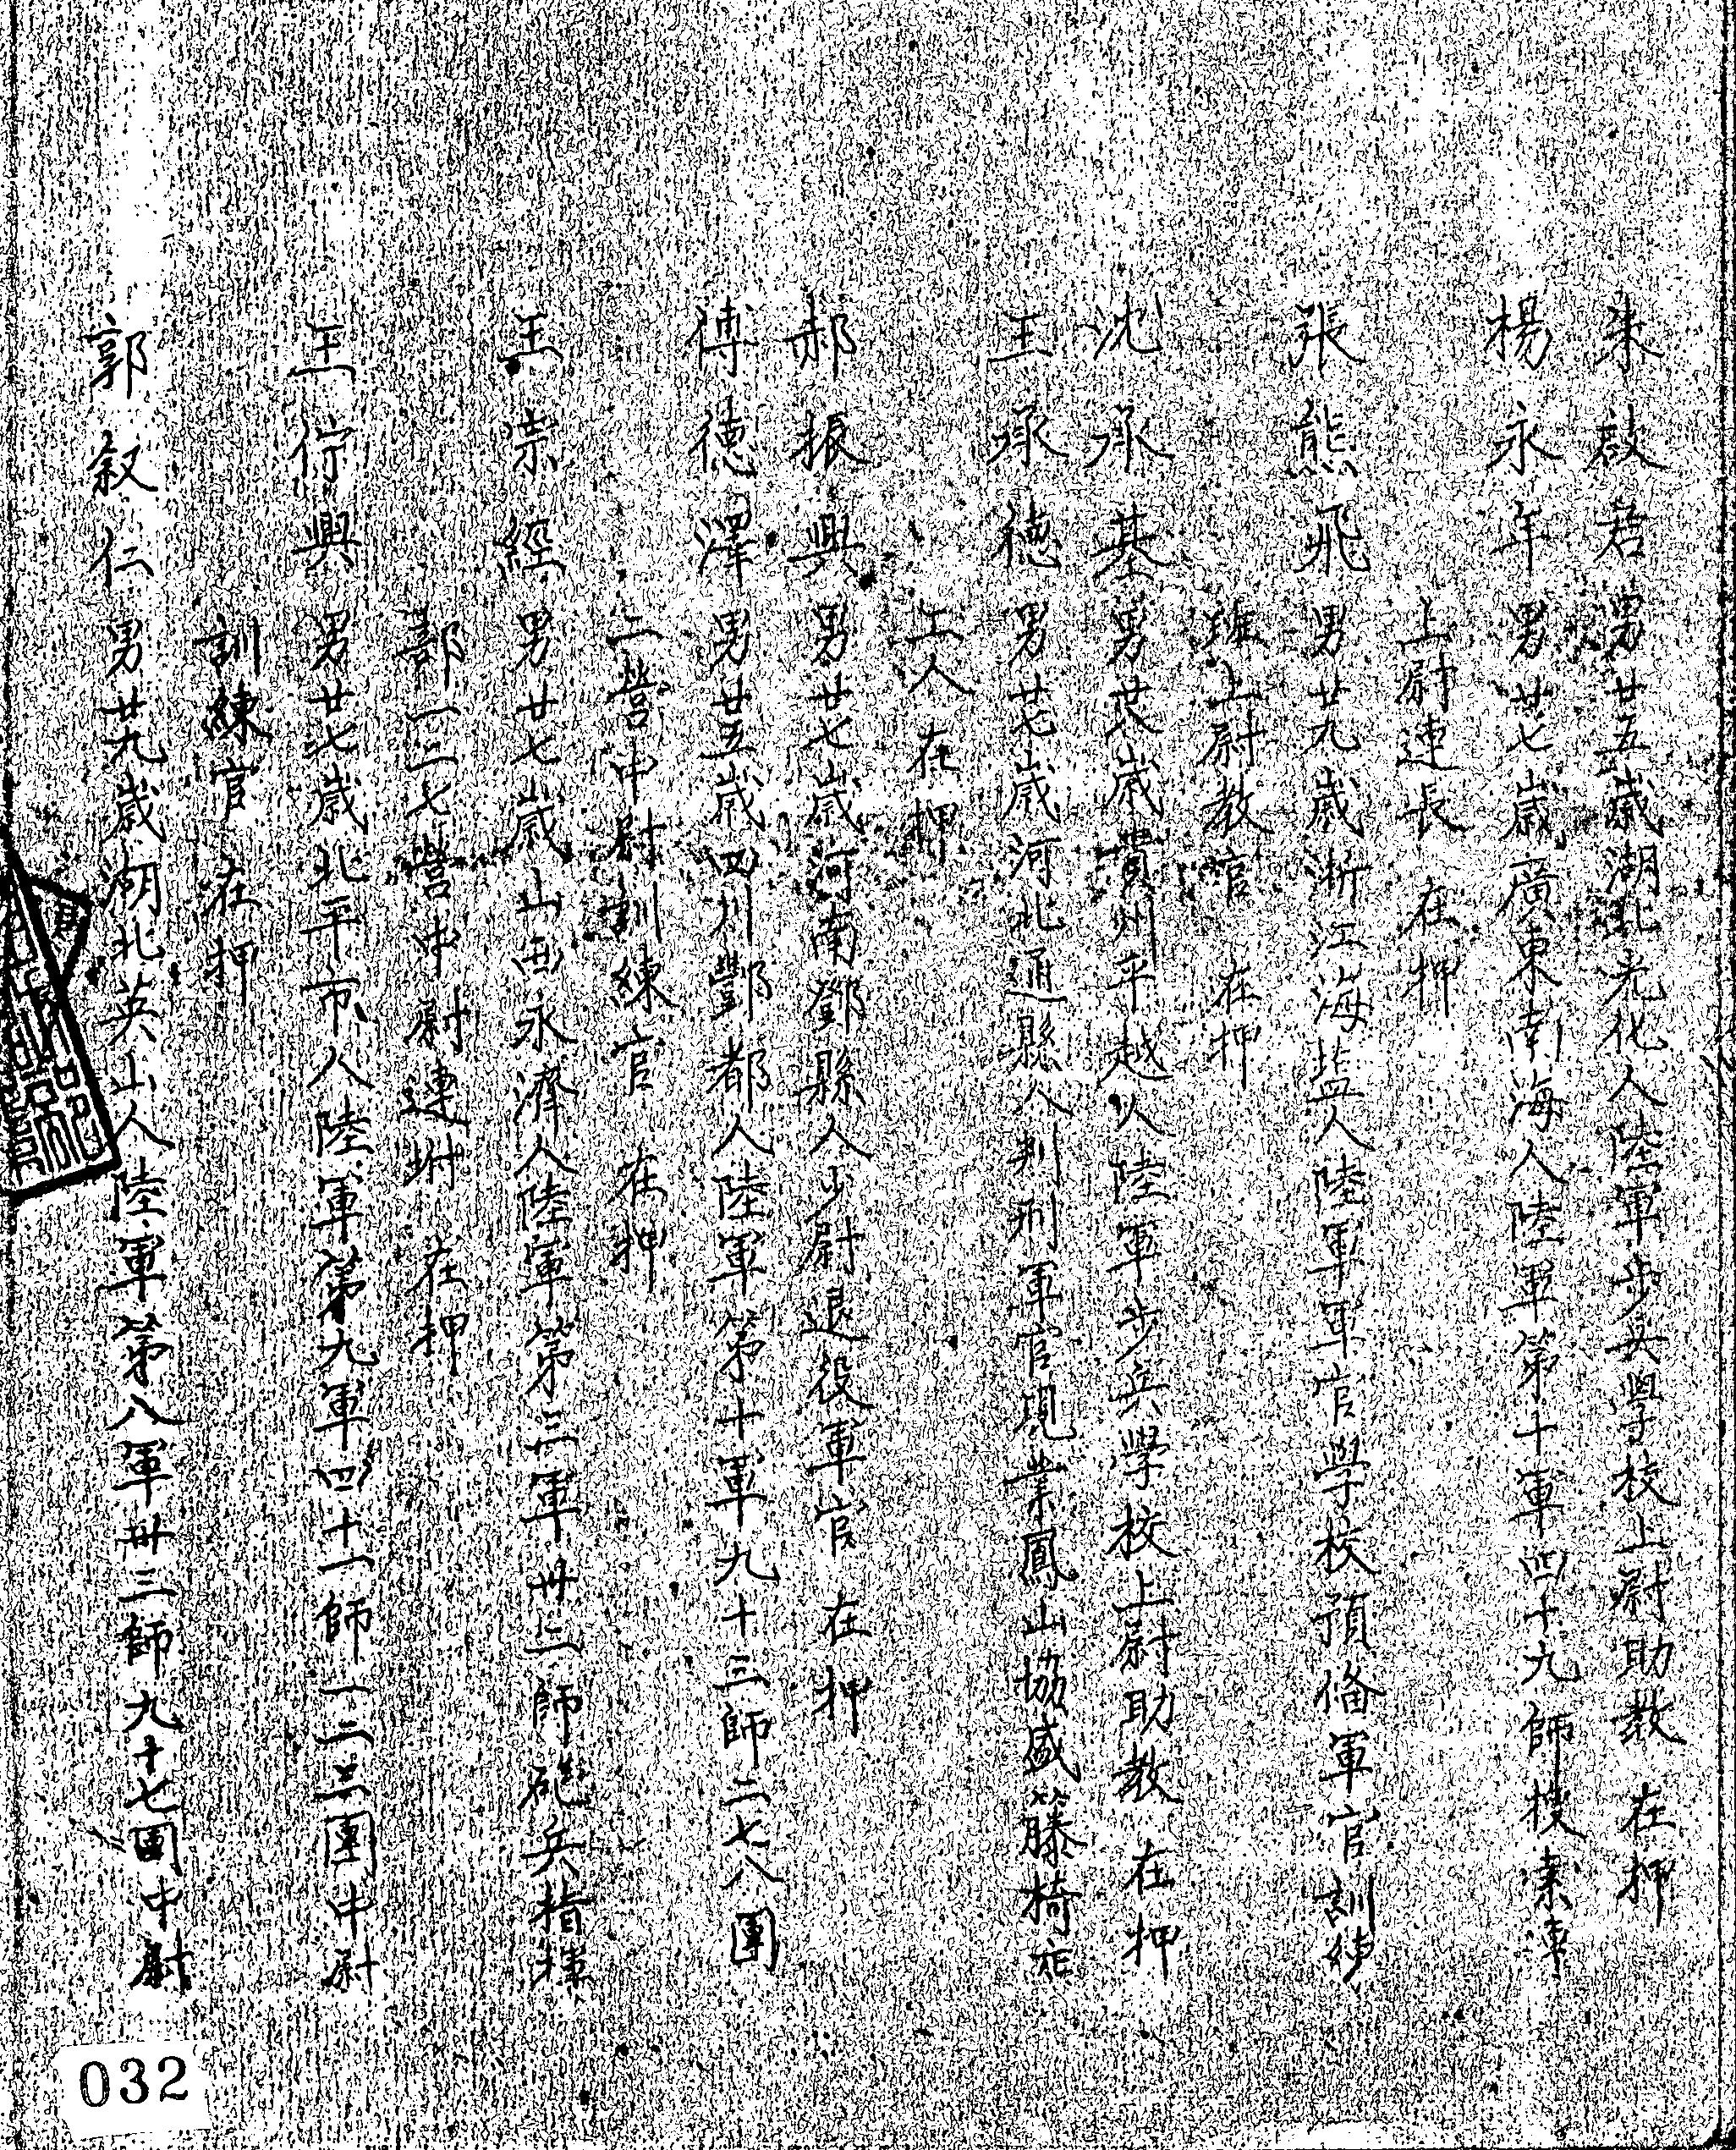 朱啟君　男廿五歲湖北光化人陸軍步兵學校上尉助教　在押
楊永年　男廿七歲廣東南海人陸軍第十軍四十九師搜索連
上尉連長　在押
張熊飛　男廿九歲浙江海塩人陸軍軍官學校預俻軍官訓練
班上尉教官　在押
沈承基　男歲貴州平越人陸軍步兵學校上尉助教　在押
王承德　男歲河北通縣人判刑軍官現業鳳山協盛籐椅店
工人　在押
郝振興　男廿七歲河南鄧縣人少尉退役軍官　在押
傅德澤　男廿五歲四川酆都人陸軍第十軍九十三師二七八團
二營中尉訓練官　在押
王崇經　男廿七歲山西永濟人陸軍第三軍卅二師砲兵指揮
部一二七營中尉連附　在押
王佇興　男廿七歲北平市人陸軍第九軍四十一師一二三團中尉
訓練官　在押
郭叙仁　男廿九歲湖北英山人陸軍第八軍卅三師九十七團中尉
032